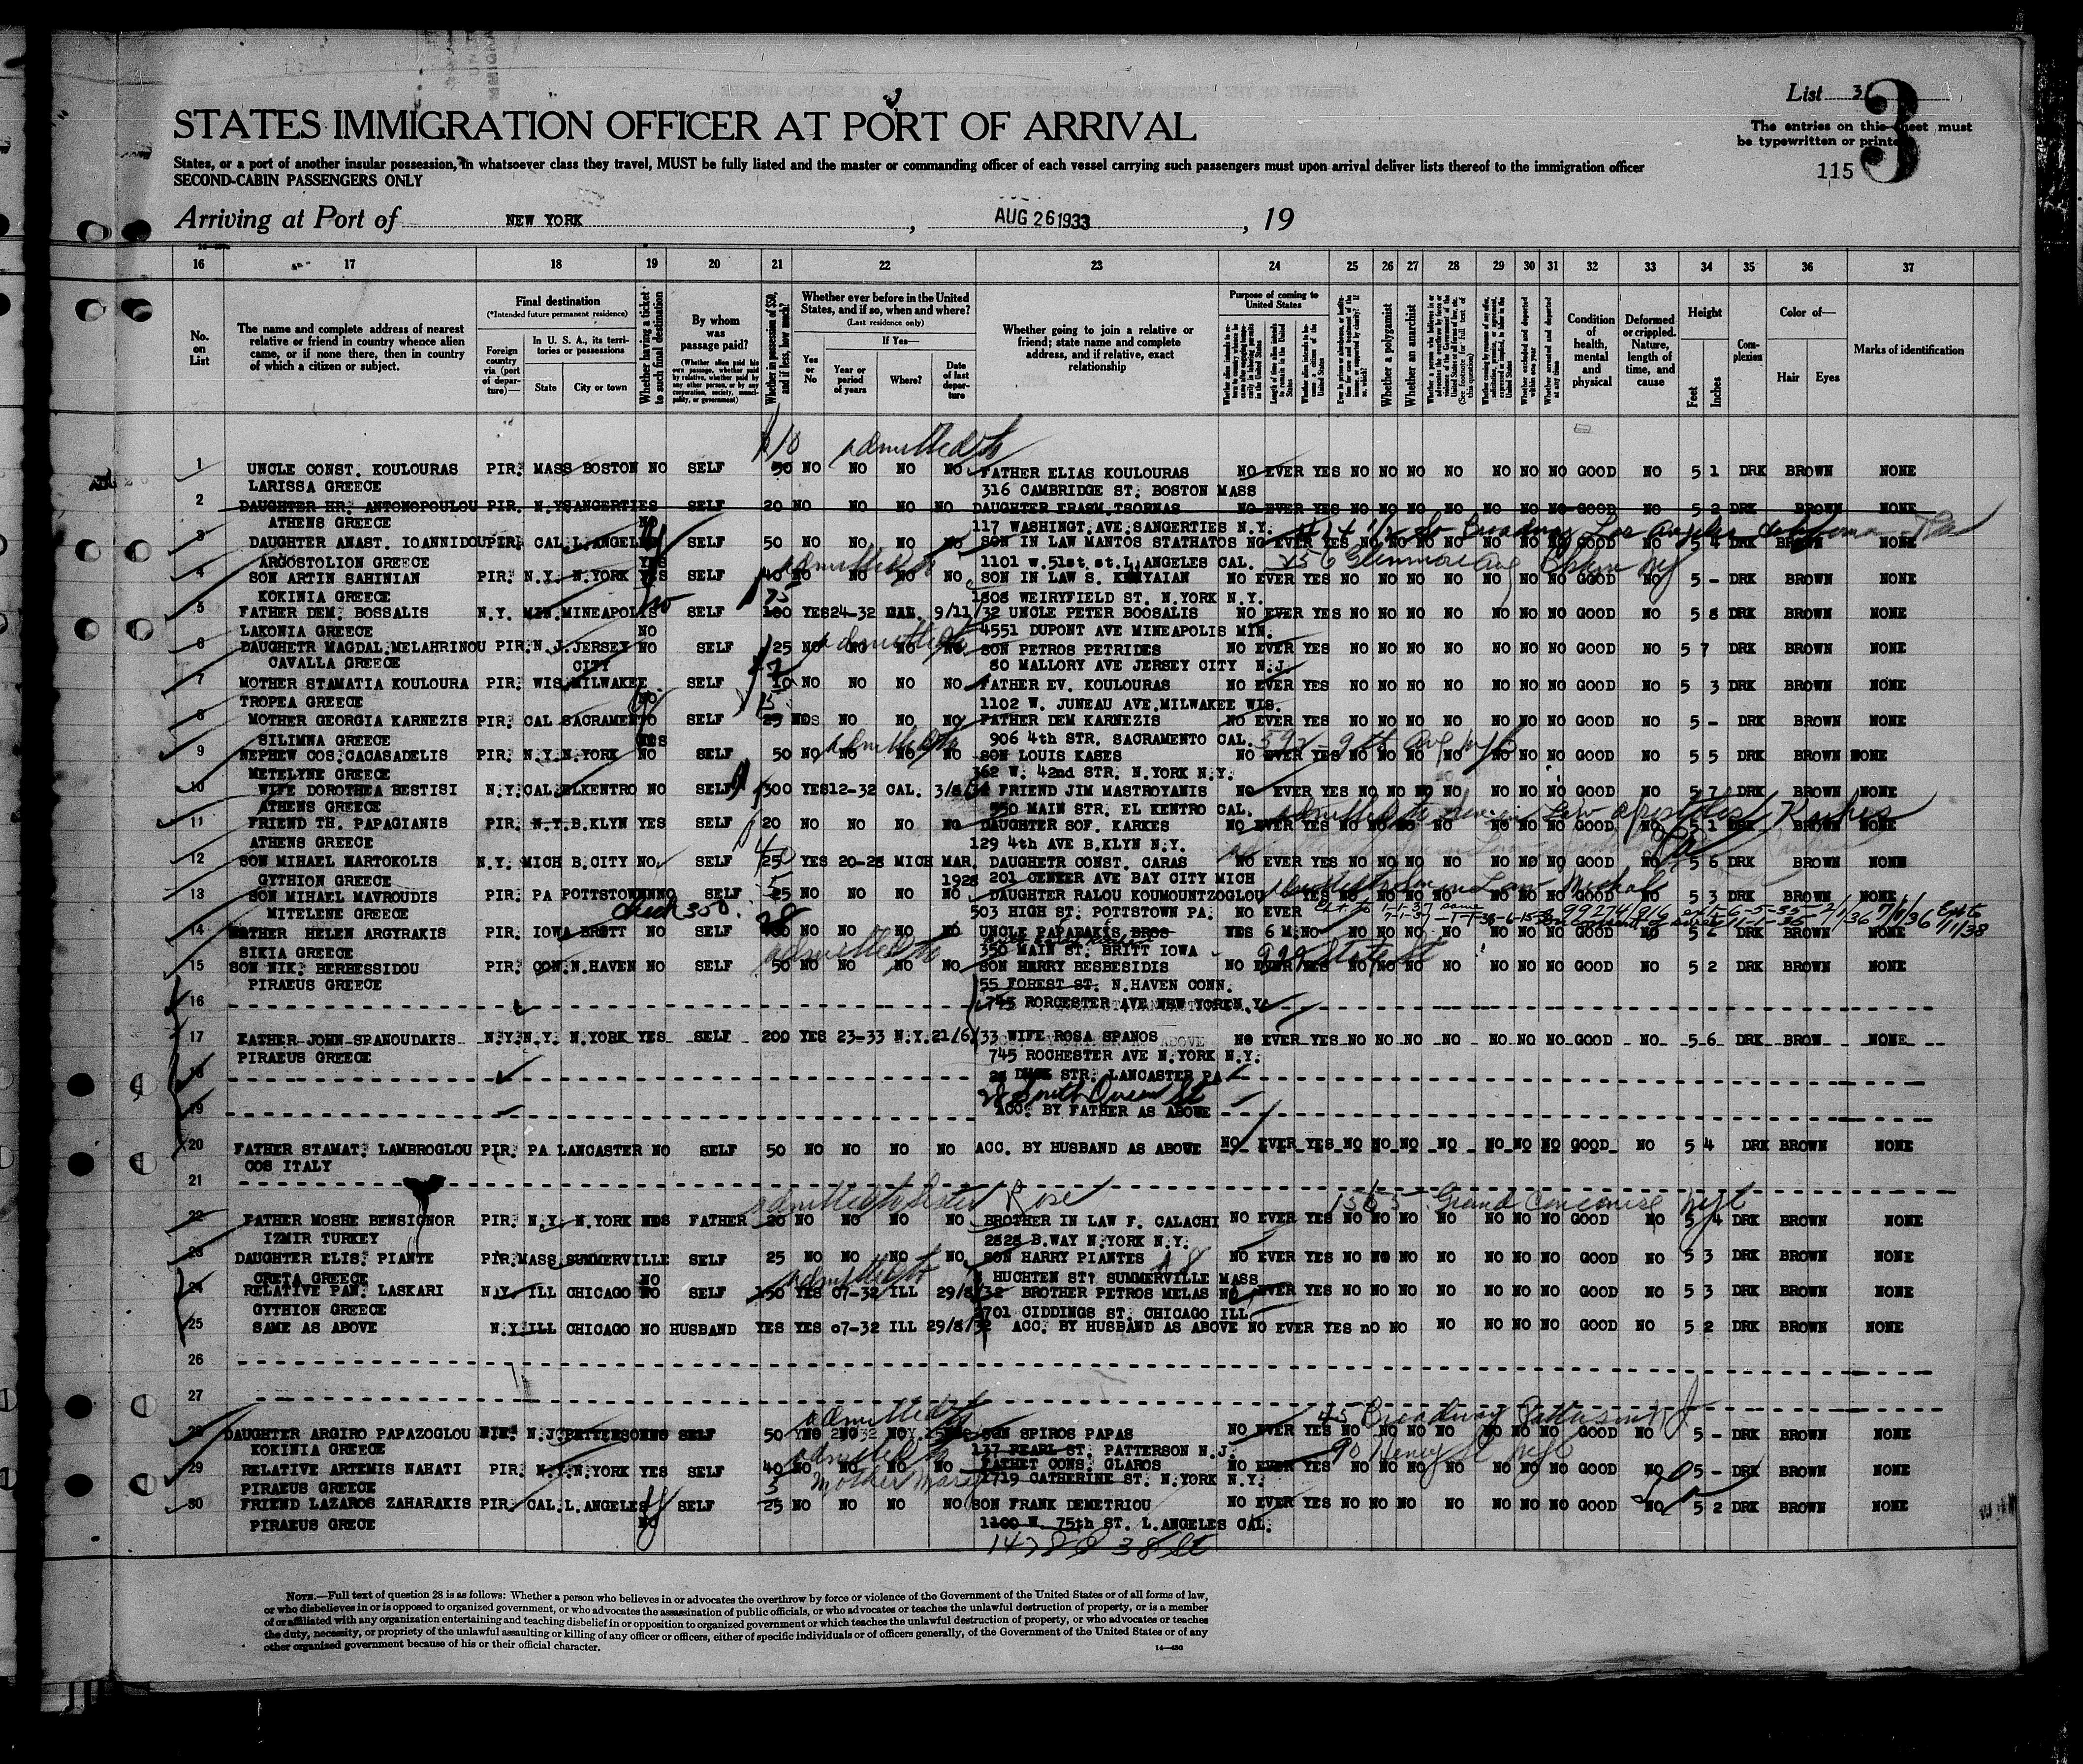 List 3
3
The entries on this sheet must
be typewritten or printed
115
STATES IMMIGRATION OFFICER AT PORT OF ARRIVAL
States, or a port of another insular possession, in whatsoever class they travel, MUST be fully listed and the master or commanding officer of each vessel carrying such passengers must upon arrival deliver lists thereof to the immigration officer
SECOND-CABIN PASSENGERS ONLY
Arriving at Port of NEW YORK, AUG 26 1933, 19
16 17 18 19 20 21 22 23 24 25 26 27 28 29 30 31 32 33 34 35 36 37
No. on List
The name and complete address of nearest relative or friend in country whence alien came, or if none there, then in country of which a citizen or subject.
Final destination
(*Intended future permanent residence)
Foreign country via (port of departure)—
In U. S. A., its territories or possessions
State
City or town
Whether having a ticket to such final destination
By whom was passage paid?
(Whether alien paid his own passage, whether paid by relative, whether paid by any other person, or by any corporation, society, municipality, or government)
Whether in possession of $50, and if less, how much?
Whether ever before in the United States, and if so, when and where?
(Last residence only)
Yes or No
If Yes—
Year or period of years
Where?
Date of last departure
Whether going to join a relative or friend; state name and complete address, and if relative, exact relationship
Purpose of coming to United States
Length of time alien intends to remain in the United States
Whether a polygamist
Whether an anarchist
Condition of health, mental and physical
Deformed or crippled. Nature, length of time, and cause
Height
Feet
Inches
Complexion
Color of—
Hair
Eyes
Marks of identification
admitted to
1 UNCLE CONST. KOULOURAS PIR. MASS BOSTON NO SELF 50 NO NO NO NO FATHER ELIAS KOULOURAS NO EVER YES NO NO NO NO NO NO NO GOOD NO 5 1 DRK BROWN NONE
LARISSA GREECE 316 CAMBRIDGE ST. BOSTON MASS
2 DAUGHTER HR. ANTONOPOULOU PIR. N.Y SANGERTIES SELF 20 NO NO NO NO DAUGHTER ERASM.TSORNAS NO EVER YES NO NO NO NO NO NO NO GOOD NO 5 2 DRK BROWN NONE
ATHENS GREECE NO 117 WASHINGT.AVE.SANGERTIES N.Y.
3 DAUGHTER ANAST. IOANNIDOU PIR. CAL L.ANGEL SELF 50 NO NO NO NO SON IN LAW MANTOS STATHATOS NO EVER YES NO NO NO NO NO NO NO GOOD NO 5 4 DRK BROWN NONE
ARGOSTOLION GREECE 1101 w.51st.st.L.ANGELES CAL.
admitted to 256 Glenmore Ave Bklyn NY
4 SON ARTIN SAHINIAN PIR. N.Y. N.YORK YES SELF 40 NO NO NO NO SON IN LAW S. NO EVER YES NO NO NO NO NO NO NO GOOD NO 5 - DRK BROWN NONE
KOKINIA GREECE 1808 WEIRYFIELD ST. N.YORK N.Y.
5 FATHER DEM. BOSSALIS N.Y. MIN.MINEAPOLIS SELF 100 YES 24-32 9/11/32 UNCLE PETER BOOSALIS NO EVER YES NO NO NO NO NO NO NO GOOD NO 5 8 DRK BROWN NONE
LAKONIA GREECE NO 4551 DUPONT AVE MINEAPOLIS MIN.
admitted to
6 DAUGHETR MAGDAL.MELAHRINOU PIR.N.J.JERSEY NO SELF 25 NO NO NO NO SON PETROS PETRIDES NO EVER YES NO NO NO NO NO NO NO GOOD NO 5 7 DRK BROWN NONE
CAVALLA GREECE CITY 80 MALLORY AVE JERSEY CITY N.J.
7 MOTHER STAMATIA KOULOURA PIR. WIS MILWAKEE SELF 10 NO NO NO NO FATHER EV. KOULOURAS NO EVER YES NO NO NO NO NO NO NO GOOD NO 5 3 DRK BROWN NONE
TROPEA GREECE 1102 W. JUNEAU AVE.MILWAKEE WIS.
8 MOTHER GEORGIA KARNEZIS PIR. CAL SACRAMENTO SELF 25 NO NO NO FATHER DEM KARNEZIS NO EVER YES NO NO NO NO NO NO NO GOOD NO 5 - DRK BROWN NONE
SILIMNA GREECE 906 4th STR. SACRAMENTO CAL.
admitted to
9 NEPHEW COS.CACASADELIS PIR. N.Y.N.YORK NO SELF 50 NO NO NO NO SON LOUIS KASES NO EVER YES NO NO NO NO NO NO NO GOOD NO 5 5 DRK BROWN NONE
METELYNE GREECE 362 W. 42nd STR. N.YORK N.Y.
10 WIFE DOROTHEA BESTISI N.Y.CAL.ELKENTRO NO SELF 300 YES 12-32 CAL. FRIEND JIM MASTROYANIS NO EVER YES NO NO NO NO NO NO NO GOOD NO 5 7 DRK BROWN NONE
ATHENS GREECE 550 MAIN STR. EL KENTRO CAL.
admitted to son in law apostolos Karkes
11 FRIEND TH. PAPAGIANIS PIR. N.Y.B.KLYN YES SELF 20 NO NO NO NO DAUGHTER SOF. KARKES NO EVER YES NO NO NO NO NO NO NO GOOD NO 5 1 DRK BROWN NONE
ATHENS GREECE 129 4th AVE B.KLYN N.Y.
12 SON MIHAEL MARTOKOLIS N.Y. MICH B.CITY NO SELF 25 YES 20-28 MICH MAR. DAUGHETR CONST. CARAS NO EVER YES NO NO NO NO NO NO NO GOOD NO 5 6 DRK BROWN NONE
GYTHION GREECE 1928 201 CENTER AVE BAY CITY MICH
13 SON MIHAEL MAVROUDIS PIR. PA POTTSTOWN NO SELF 25 NO NO NO NO DAUGHTER RALOU KOUMOUNTZOGLOU YES NO NO NO NO NO NO NO GOOD NO 5 3 DRK BROWN NONE
MITELENE GREECE 503 HIGH ST. POTTSTOWN PA. NO EVER
check 350.
14 MOTHER HELEN ARGYRAKIS PIR. IOWA BRITT NO SELF NO NO NO NO UNCLE PAPADAKIS BROS YES 6 M. NO NO NO NO NO NO NO NO GOOD NO 5 DRK BROWN NONE
SIKIA GREECE 350 MAIN ST. BRITT IOWA
admitted to 999 State St
15 SON NIK. BERBESSIDOU PIR. CON.N.HAVEN NO SELF 50 NO NO NO NO SON HARRY BESBESIDIS NO EVER YES NO NO NO NO NO NO NO GOOD NO 5 2 DRK BROWN NONE
PIRAEUS GREECE 55 FOREST ST. N.HAVEN CONN.
16 745 RORCESTER AVE NEW YORK N.Y.
17 FATHER JOHN SPANOUDAKIS N.Y.N.Y. N.YORK YES SELF 200 YES 23-33 N.Y.21/6/33 WIFE ROSA SPANOS NO EVER YES NO NO NO NO NO NO NO GOOD NO 5 6 DRK BROWN NONE
PIRAEUS GREECE 745 ROCHESTER AVE N.YORK N.Y.
18 STR. LANCASTER PA
28 South Queen St
19 ACC. BY FATHER AS ABOVE
20 FATHER STAMAT. LAMBROGLOU PIR. PA LANCASTER NO SELF 50 NO NO NO NO ACC. BY HUSBAND AS ABOVE NO EVER YES NO NO NO NO NO NO NO GOOD NO 5 4 DRK BROWN NONE
COS ITALY
21
admitted to sister Rose 1565 Grand Concourse NYC
22 FATHER MOSHE BENSIGNOR PIR. N.Y. N.YORK FATHER 20 NO NO NO NO BROTHER IN LAW F. CALACHI NO EVER YES NO NO NO NO NO NO NO GOOD NO 5 4 DRK BROWN NONE
IZMIR TURKEY 2828 B.WAY N.YORK N.Y.
23 DAUGHTER ELIS. PIANTE PIR.MASS.SUMMERVILLE SELF 25 NO NO NO NO SON HARRY PIANTES NO EVER YES NO NO NO NO NO NO NO GOOD NO 5 3 DRK BROWN NONE
CRETA GREECE NO HUCHTEN ST? SUMMERVILLE MASS
24 RELATIVE PAN. LASKARI N.Y. ILL CHICAGO NO SELF 50 YES 07-32 ILL 29/8/32 BROTHER PETROS MELAS NO EVER YES NO NO NO NO NO NO NO GOOD NO 5 3 DRK BROWN NONE
GYTHION GREECE 2701 CIDDINGS ST. CHICAGO ILL
25 SAME AS ABOVE N.Y.ILL CHICAGO NO HUSBAND YES YES 07-32 ILL 29/8/32 ACC. BY HUSBAND AS ABOVE NO EVER YES nO NO NO NO NO NO GOOD NO 5 2 DRK BROWN NONE
26
27
admitted to 45 Broadway Patterson NJ
28 DAUGHTER ARGIRO PAPAZOGLOU N.J.PATTERSON NO SELF 50 SON SPIROS PAPAS NO EVER YES NO NO NO NO NO NO NO GOOD NO 5 - DRK BROWN NONE
KOKINIA GREECE 137 PEARL ST. PATTERSON N.J.
admitted to 90 Henry St NYC
29 RELATIVE ARTEMIS NAHATI PIR. N.Y.N.YORK YES SELF 40 NO NO NO NO FATHET CONS. GLAROS NO EVER YES NO NO NO NO NO NO NO GOOD NO 5 - DRK BROWN NONE
PIRAEUS GREECE mother Mary 1719 CATHERINE ST. N.YORK N.Y.
30 FRIEND LAZAROS ZAHARAKIS PIR. CAL.L.ANGELES SELF 25 NO NO NO NO SON FRANK DEMETRIOU NO EVER YES NO NO NO NO NO NO NO GOOD NO 5 2 DRK BROWN NONE
PIRAEUS GRECE NO 1100 W. 75th ST. L.ANGELES CAL.
NOTE.—Full text of question 28 is as follows: Whether a person who believes in or advocates the overthrow by force or violence of the Government of the United States or of all forms of law,
or who disbelieves in or is opposed to organized government, or who advocates the assassination of public officials, or who advocates or teaches the unlawful destruction of property, or is a member
of or affiliated with any organization entertaining and teaching disbelief in or opposition to organized government or which teaches the unlawful destruction of property, or who advocates or teaches
the duty, necessity, or propriety of the unlawful assaulting or killing of any officer or officers, either of specific individuals or of officers generally, of the Government of the United States or of any
other organized government because of his or their official character.
14—430